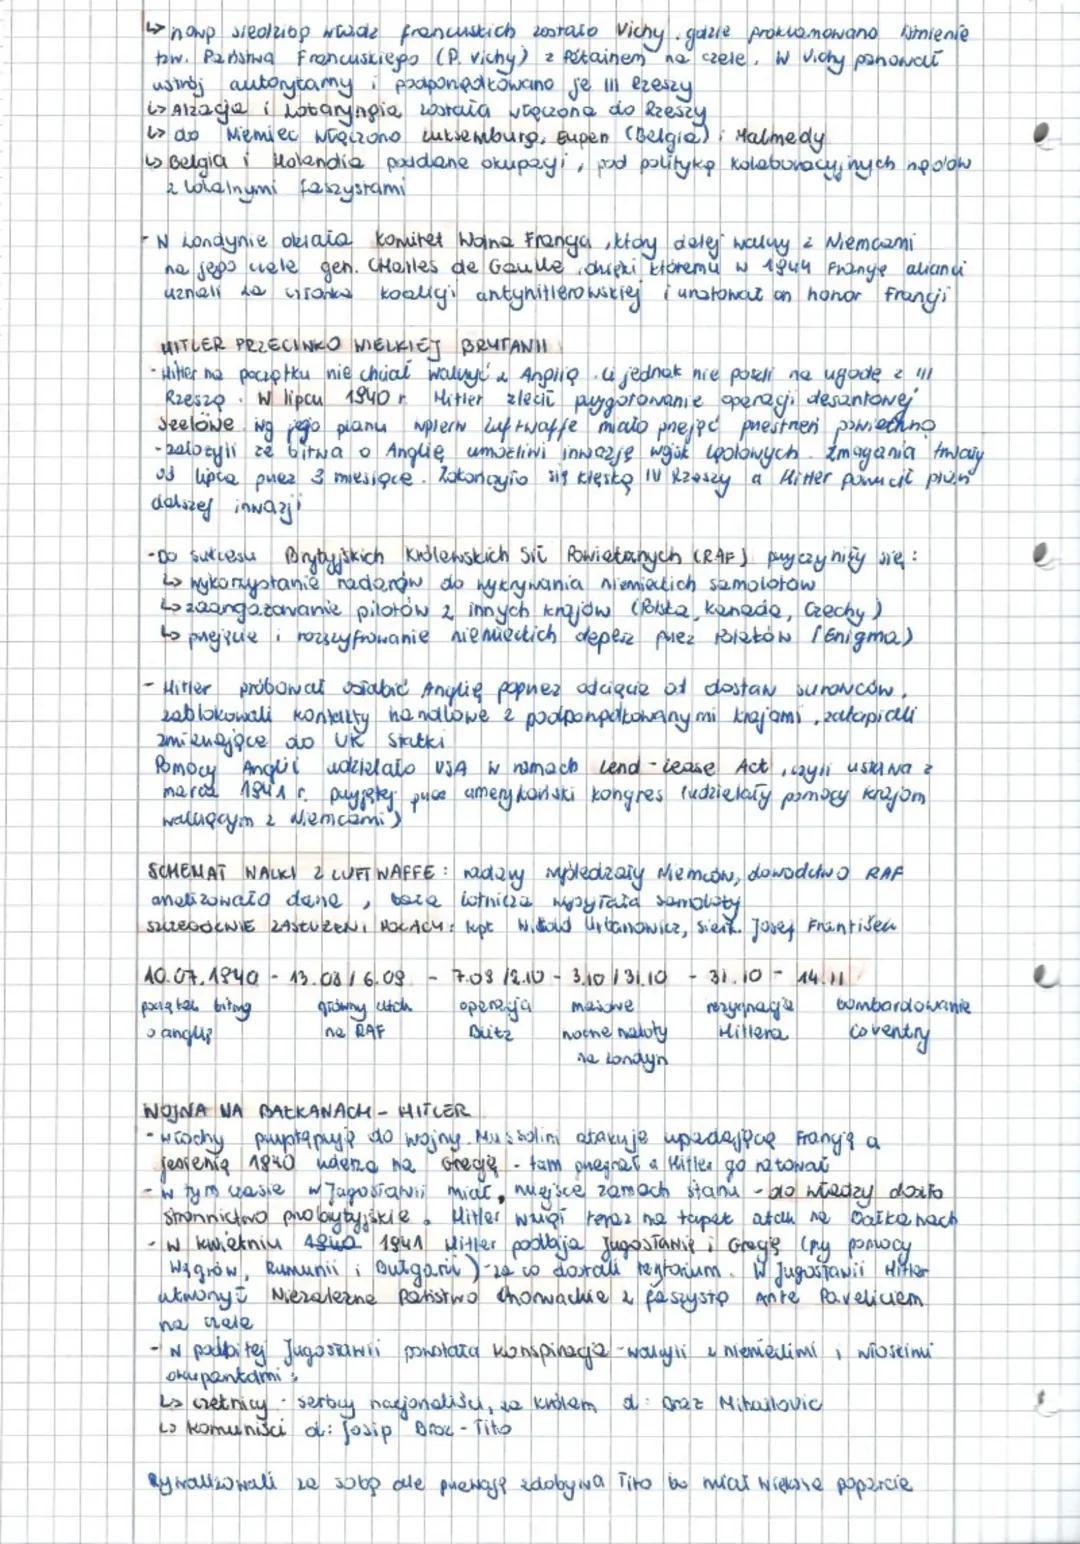 ↳ nową siedzibą władz francuskich zostało Vichy, gdzie proklamowano istnienie
tzw. Państwa Francuskiego (P. Vichy) z Pétainem na czele. W Vichy panował
ustrój autorytarny i podporządkowano je III Rzeszy
↳ Alzacja i Lotaryngia została włączona do Rzeszy
↳ do Niemiec włączono Luksemburg, Eupen (Belgia) i Malmedy
↳ Belgia i Holandia poddane okupacji, pod politykę kolaboracyjnych rządów
z lokalnymi faszystami
- W Londynie działa Komitet Wolna Francja, który dalej walczy z Niemcami
na jego czele gen. CHarles de Gaulle, dzięki któremu w 1944 Francję alianci
uznali za członka koalicji antyhitlerowskiej i uratował on honor Francji
HITLER PRZECINKO WIELKIEJ BRYTANII
- Hitler na początku nie chciał walczyć z Anglią. Ci jednak nie poszli na ugodę z III
Rzeszą. W lipcu 1940 r. Hitler zlecił przygotowanie operacji desantowej
Seelöwe. wg jego planu wpierw Luftwaffe miało przejąć przestrzeń powietrzną
- założyli że bitwa o Anglię umożliwi inwazję wojsk lądowych. Zmagania trwały
od lipca przez 3 miesiące. Zakończyło się klęską IV Rzeszy a Hitler porzucił plan
dalszej inwazji
- Do sukcesu Brytyjskich Królewskich Sił Powietrznych (RAF) przyczyniły się:
↳ wykorzystanie radarów do wykrywania niemieckich samolotów
↳ zaangażowanie pilotów z innych krajów (Polska, Kanada, Czechy)
↳ przejęcie i rozszyfrowanie niemieckich depesz przez Polaków (Enigma)
- Hitler próbował osłabić Anglię poprzez odcięcie od dostaw surowców,
zablokowali kontakty handlowe z podporządkowanymi krajami, zatapiali
zmierzające do UK statki
Pomocy Anglii udzielało USA w ramach Lend-Lease Act, czyli ustawa z
marca 1941 r. przyjętej przez amerykański kongres (udzielały pomocy krajom
walczącym z Niemcami)
SCHEMAT WALKI Z LUFTWAFFE: radary wyśledzały Niemców, dowództwo RAF
analizowało dane, baza lotnicza wysyłała samoloty
SZCZEGÓLNIE ZASŁUŻENI POLACY: kpt. Witold Urbanowicz, sierż. Josef František
10.07.1940 - 13.08/6.09 - 7.09/2.10 - 3.10/31.10 - 31.10 - 14.11
początek bitwy główny atak operacja masowe rezygnacja bombardowanie
o anglię na RAF Blitz nocne naloty Hitlera Coventry
na Londyn
WOJNA NA BAŁKANACH - HITLER
- Włochy przystępują do wojny. Mussolini atakuje upadającą Francję a
jesienią 1940 uderza na Grecję - tam przegrał a Hitler go ratował
- W tym czasie w Jugosławii miał miejsce zamach stanu - do władzy doszło
stronnictwo probrytyjskie. Hitler wziął teraz na tapet atak na Bałkanach
- W kwietniu 1940 1941 Hitler podbija Jugosławię i Grecję (przy pomocy
Węgrów, Rumunii i Bułgarii) - za co dostali terytorium. W Jugosławii Hitler
utworzył Niezależne Państwo Chorwackie z faszystą Ante Paveliciem
na czele
- W podbitej Jugosławii powstała konspiracja - walczyli z niemieckimi i włoskimi
okupantami:
↳ czetnicy - serbscy nacjonaliści, za królem d: Draż Mihailovic
↳ komuniści d: Josip Broz - Tito
Rywalizowali ze sobą ale przewagę zdobywa Tito bo miał większe poparcie